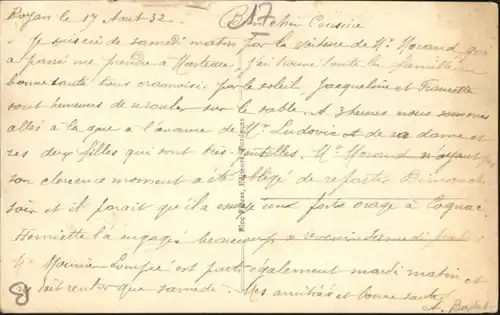 Royan le 17 Août 32. Bien cher Cousine
17
Je suis ici de samedi matin par la voiture de Mr Morand qui
a passé me prendre à Monteau j'ai trouvé toute la famille en
bonne santé tous cramoisi par le soleil, Jacqueline et Francette
sont heureuses de se rouler sur le sable. A 3 heures nous sommes
allés à la gare à l'avance de Mr Ludovic et de sa dame et
ses deux filles qui sont très gentilles. Mr Morand n'ayant
son moment a été obligé de repartir Dimanche
soir et il parait qu'il a essuyé un fort orage à Cognac.
Henriette l'a engagé beaucoup a revenir samedi
Mr est parti également mardi matin et
ne doit rentrer que samedi. Mes amitiés et bonne santé
A.
8